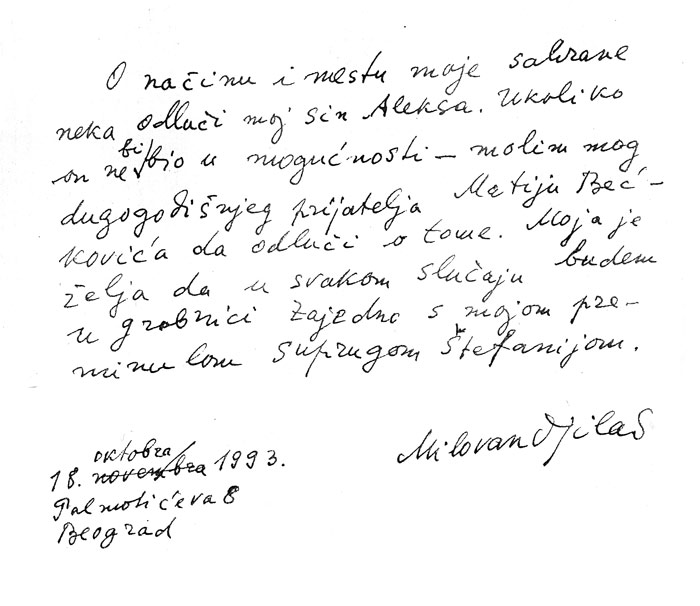 O načinu i mestu moje sahrane
neka odluči moj sin Aleksa. Ukoliko
on ne bi bio u mogućnosti – molim mog
dugogodišnjeg prijatelja Matiju Beć-
kovića da odluči o tome. Moja je
želja da u svakom slučaju budem
u grobnici zajedno s mojom pre-
minulom suprugom Štefanijom.
Milovan Djilas
oktobra
18. novembra 1993.
Palmotićeva 8
Beograd